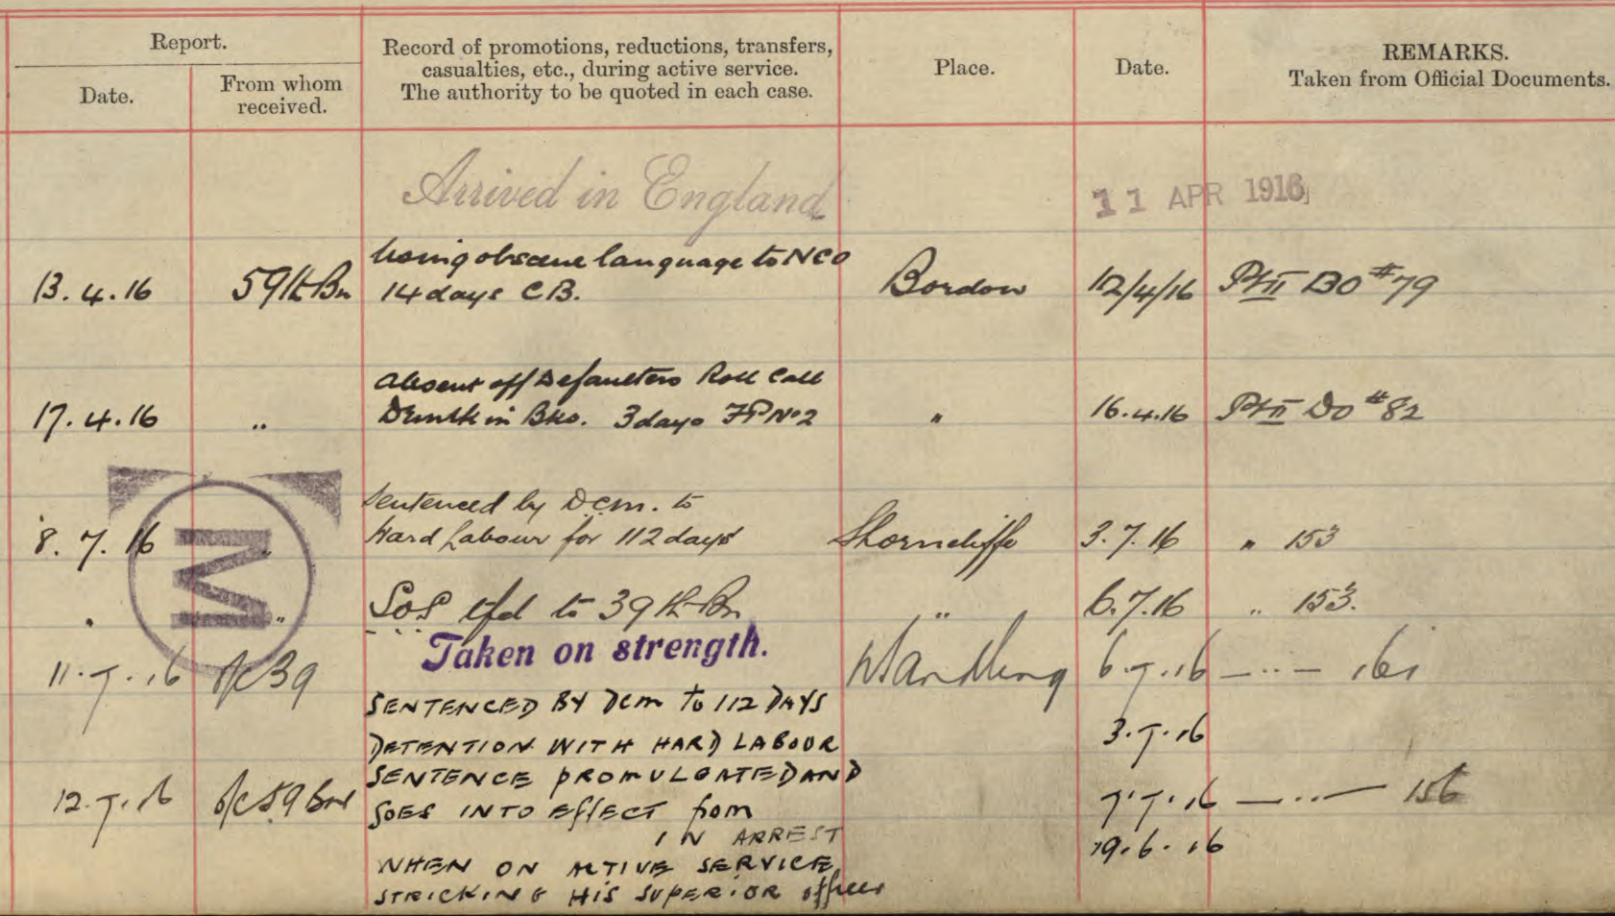 Report.
Date.
From whom
received.
Record of promotions, reductions, transfers,
casualties, etc., during active service.
The authority to be quoted in each case.
Place.
Date.
REMARKS.
Taken from Official Documents.
Arrived in England 11 APR 1916
Using obscene language to NCO
13.4.16 59th Bn 14 days C.B. Bordon 12/4/16 Pt II DO #79
Absent off Defaulters Roll Call
17.4.16 " Drunk in Bks. 3 days FP No 2 " 16.4.16 Pt II DO #82
M
Sentenced by D.C.M. to
8.7.16 " Hard Labour for 112 days Shorncliffe 3.7.16 " 153
" " SOS tfd to 39th Bn " 6.7.16 " 153.
Taken on strength.
11.7.16 O/C 39 6.7.16 — " — 161
SENTENCED BY DCM TO 112 DAYS
DETENTION WITH HARD LABOUR 3.7.16
SENTENCE PROMULGATED AND
12.7.16 O/C 59 Bn GOES INTO EFFECT from 7.7.16 — " — 156
IN ARREST 19.6.16
WHEN ON ACTIVE SERVICE
STRICKING HIS SUPERIOR officer